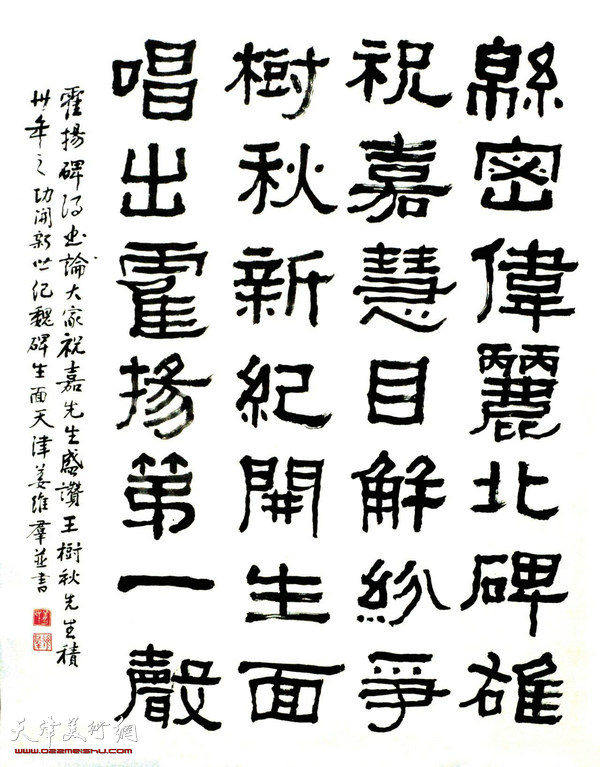 緜密偉麗北碑雄
祝嘉慧目解紛爭
樹秋新紀開生面
唱出霍揚第一聲
霍揚碑得書論大家祝嘉先生盛讚王樹秋先生積
卅年之功開新世紀魏碑生面天津姜維羣並書
天津美術網
www.022meishu.com